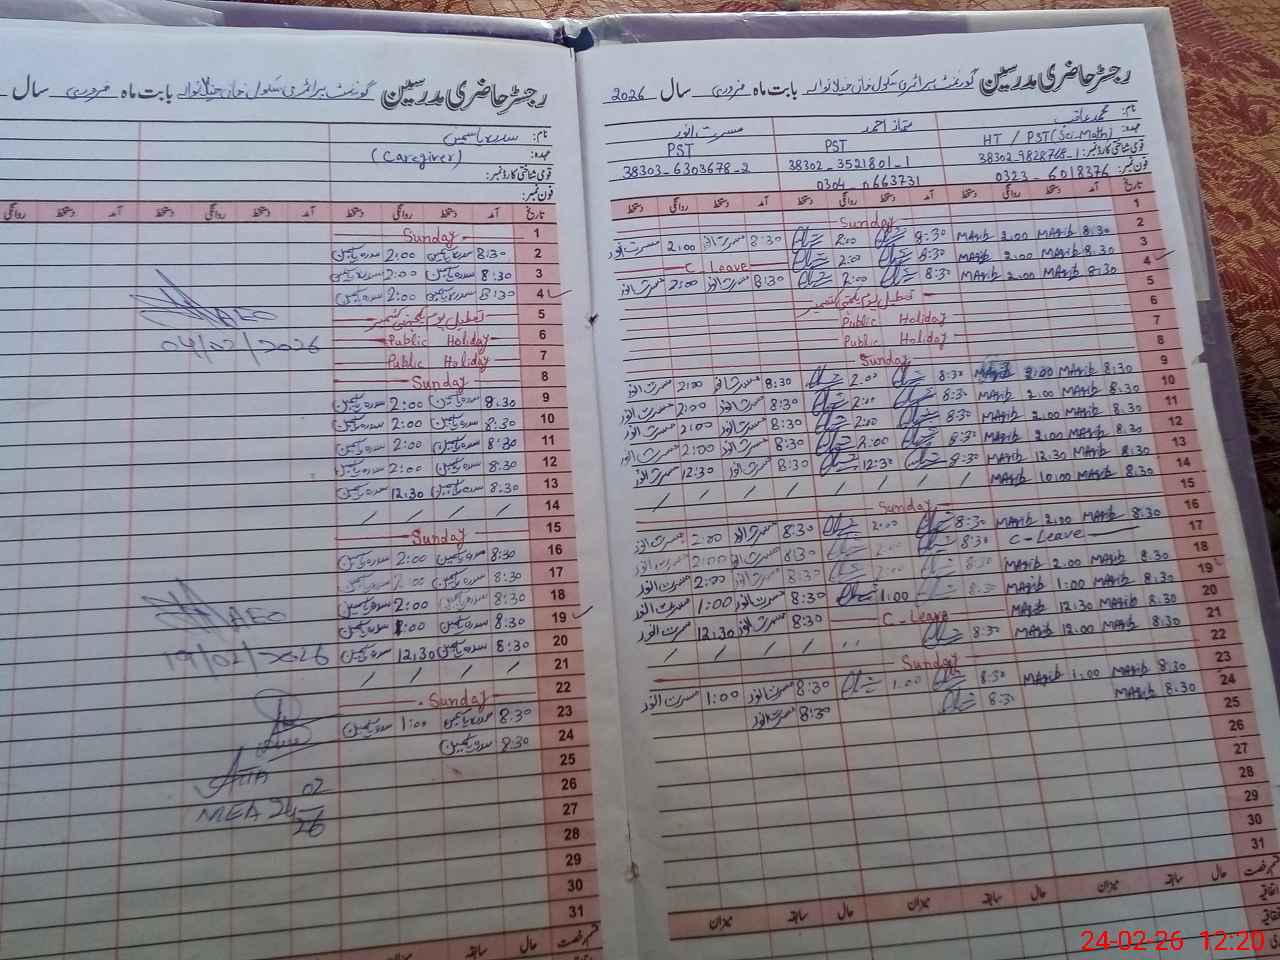 رجسٹر حاضری مدرسین گورنمنٹ پرائمری سکول خان جیلانوالہ بابت ماہ فروری سال
نام: سدرہ یاسمین
عہدہ: (Caregiver)
قومی شناختی کارڈ نمبر:
فون نمبر:
تاریخ آمد دستخط روانگی دستخط آمد دستخط روانگی دستخط آمد دستخط روانگی
1 Sunday
2 8:30 سدرہ یاسمین 2:00 سدرہ یاسمین
3 8:30 سدرہ یاسمین 2:00 سدرہ یاسمین
4 8:30 سدرہ یاسمین 2:00 سدرہ یاسمین
5 تعطیل یوم یکجہتی کشمیر
6 Public Holiday
7 Public Holiday
8 Sunday
9 8:30 سدرہ یاسمین 2:00 سدرہ یاسمین
10 8:30 سدرہ یاسمین 2:00 سدرہ یاسمین
11 8:30 سدرہ یاسمین 2:00 سدرہ یاسمین
12 8:30 سدرہ یاسمین 2:00 سدرہ یاسمین
13 8:30 سدرہ یاسمین 12:30 سدرہ یاسمین
14 / / / /
15 Sunday
16 8:30 سدرہ یاسمین 2:00 سدرہ یاسمین
17 8:30 سدرہ یاسمین 2:00 سدرہ یاسمین
18 8:30 سدرہ یاسمین 2:00 سدرہ یاسمین
19 8:30 سدرہ یاسمین 1:00 سدرہ یاسمین
20 8:30 سدرہ یاسمین 12:30 سدرہ یاسمین
21 / / / /
22 Sunday
23 8:30 سدرہ یاسمین 1:00 سدرہ یاسمین
24 8:30 سدرہ یاسمین
25
26
27
28
29
30
31
حال سابقہ میزان
AEO
04/02/2026
AEO
19/02/2026
MEA 24 02
26
رجسٹر حاضری مدرسین گورنمنٹ پرائمری سکول خان جیلانوالہ بابت ماہ فروری سال 2026
نام: محمد عاقب ممتاز احمد مسرت انور
عہدہ: HT / PST(Sci.Math) PST PST
قومی شناختی کارڈ نمبر: 38302-9828768-1 38302-3521801-1 38303-6303678-2
فون نمبر: 0323-6018376 0304-0663731
تاریخ آمد دستخط روانگی دستخط آمد دستخط روانگی دستخط آمد دستخط روانگی دستخط
1 Sunday
2 8:30 MAqib 2:00 MAqib 8:30 2:00 8:30 مسرت انور 2:00 مسرت انور
3 8:30 MAqib 2:00 MAqib 8:30 2:00 C Leave
4 8:30 MAqib 2:00 MAqib 8:30 2:00 8:30 مسرت انور 2:00 مسرت انور
5 تعطیل یوم یکجہتی کشمیر
6 Public Holiday
7 Public Holiday
8 Sunday
9 8:30 MAqib 2:00 MAqib 8:30 2:00 8:30 مسرت انور 2:00 مسرت انور
10 8:30 MAqib 2:00 MAqib 8:30 2:00 8:30 مسرت انور 2:00 مسرت انور
11 8:30 MAqib 2:00 MAqib 8:30 2:00 8:30 مسرت انور 2:00 مسرت انور
12 8:30 MAqib 2:00 MAqib 8:30 2:00 8:30 مسرت انور 2:00 مسرت انور
13 8:30 MAqib 12:30 MAqib 8:30 12:30 8:30 مسرت انور 12:30 مسرت انور
14 8:30 MAqib 10:00 MAqib / / / / / / / /
15 Sunday
16 8:30 MAqib 2:00 MAqib 8:30 2:00 8:30 مسرت انور 2:00 مسرت انور
17 C-Leave 8:30 2:00 8:30 مسرت انور 2:00 مسرت انور
18 8:30 MAqib 2:00 MAqib 8:30 2:00 8:30 مسرت انور 2:00 مسرت انور
19 8:30 MAqib 1:00 MAqib 8:30 1:00 8:30 مسرت انور 1:00 مسرت انور
20 8:30 MAqib 12:30 MAqib C-Leave 8:30 مسرت انور 12:30 مسرت انور
21 8:30 MAqib 12:00 MAqib 8:30 / / / / / /
22 Sunday
23 8:30 MAqib 1:00 MAqib 8:30 1:00 8:30 مسرت انور 1:00 مسرت انور
24 8:30 MAqib 8:30 8:30 مسرت انور
25
26
27
28
29
30
31
حال سابقہ میزان حال سابقہ میزان حال سابقہ میزان
24-02-26 12:20